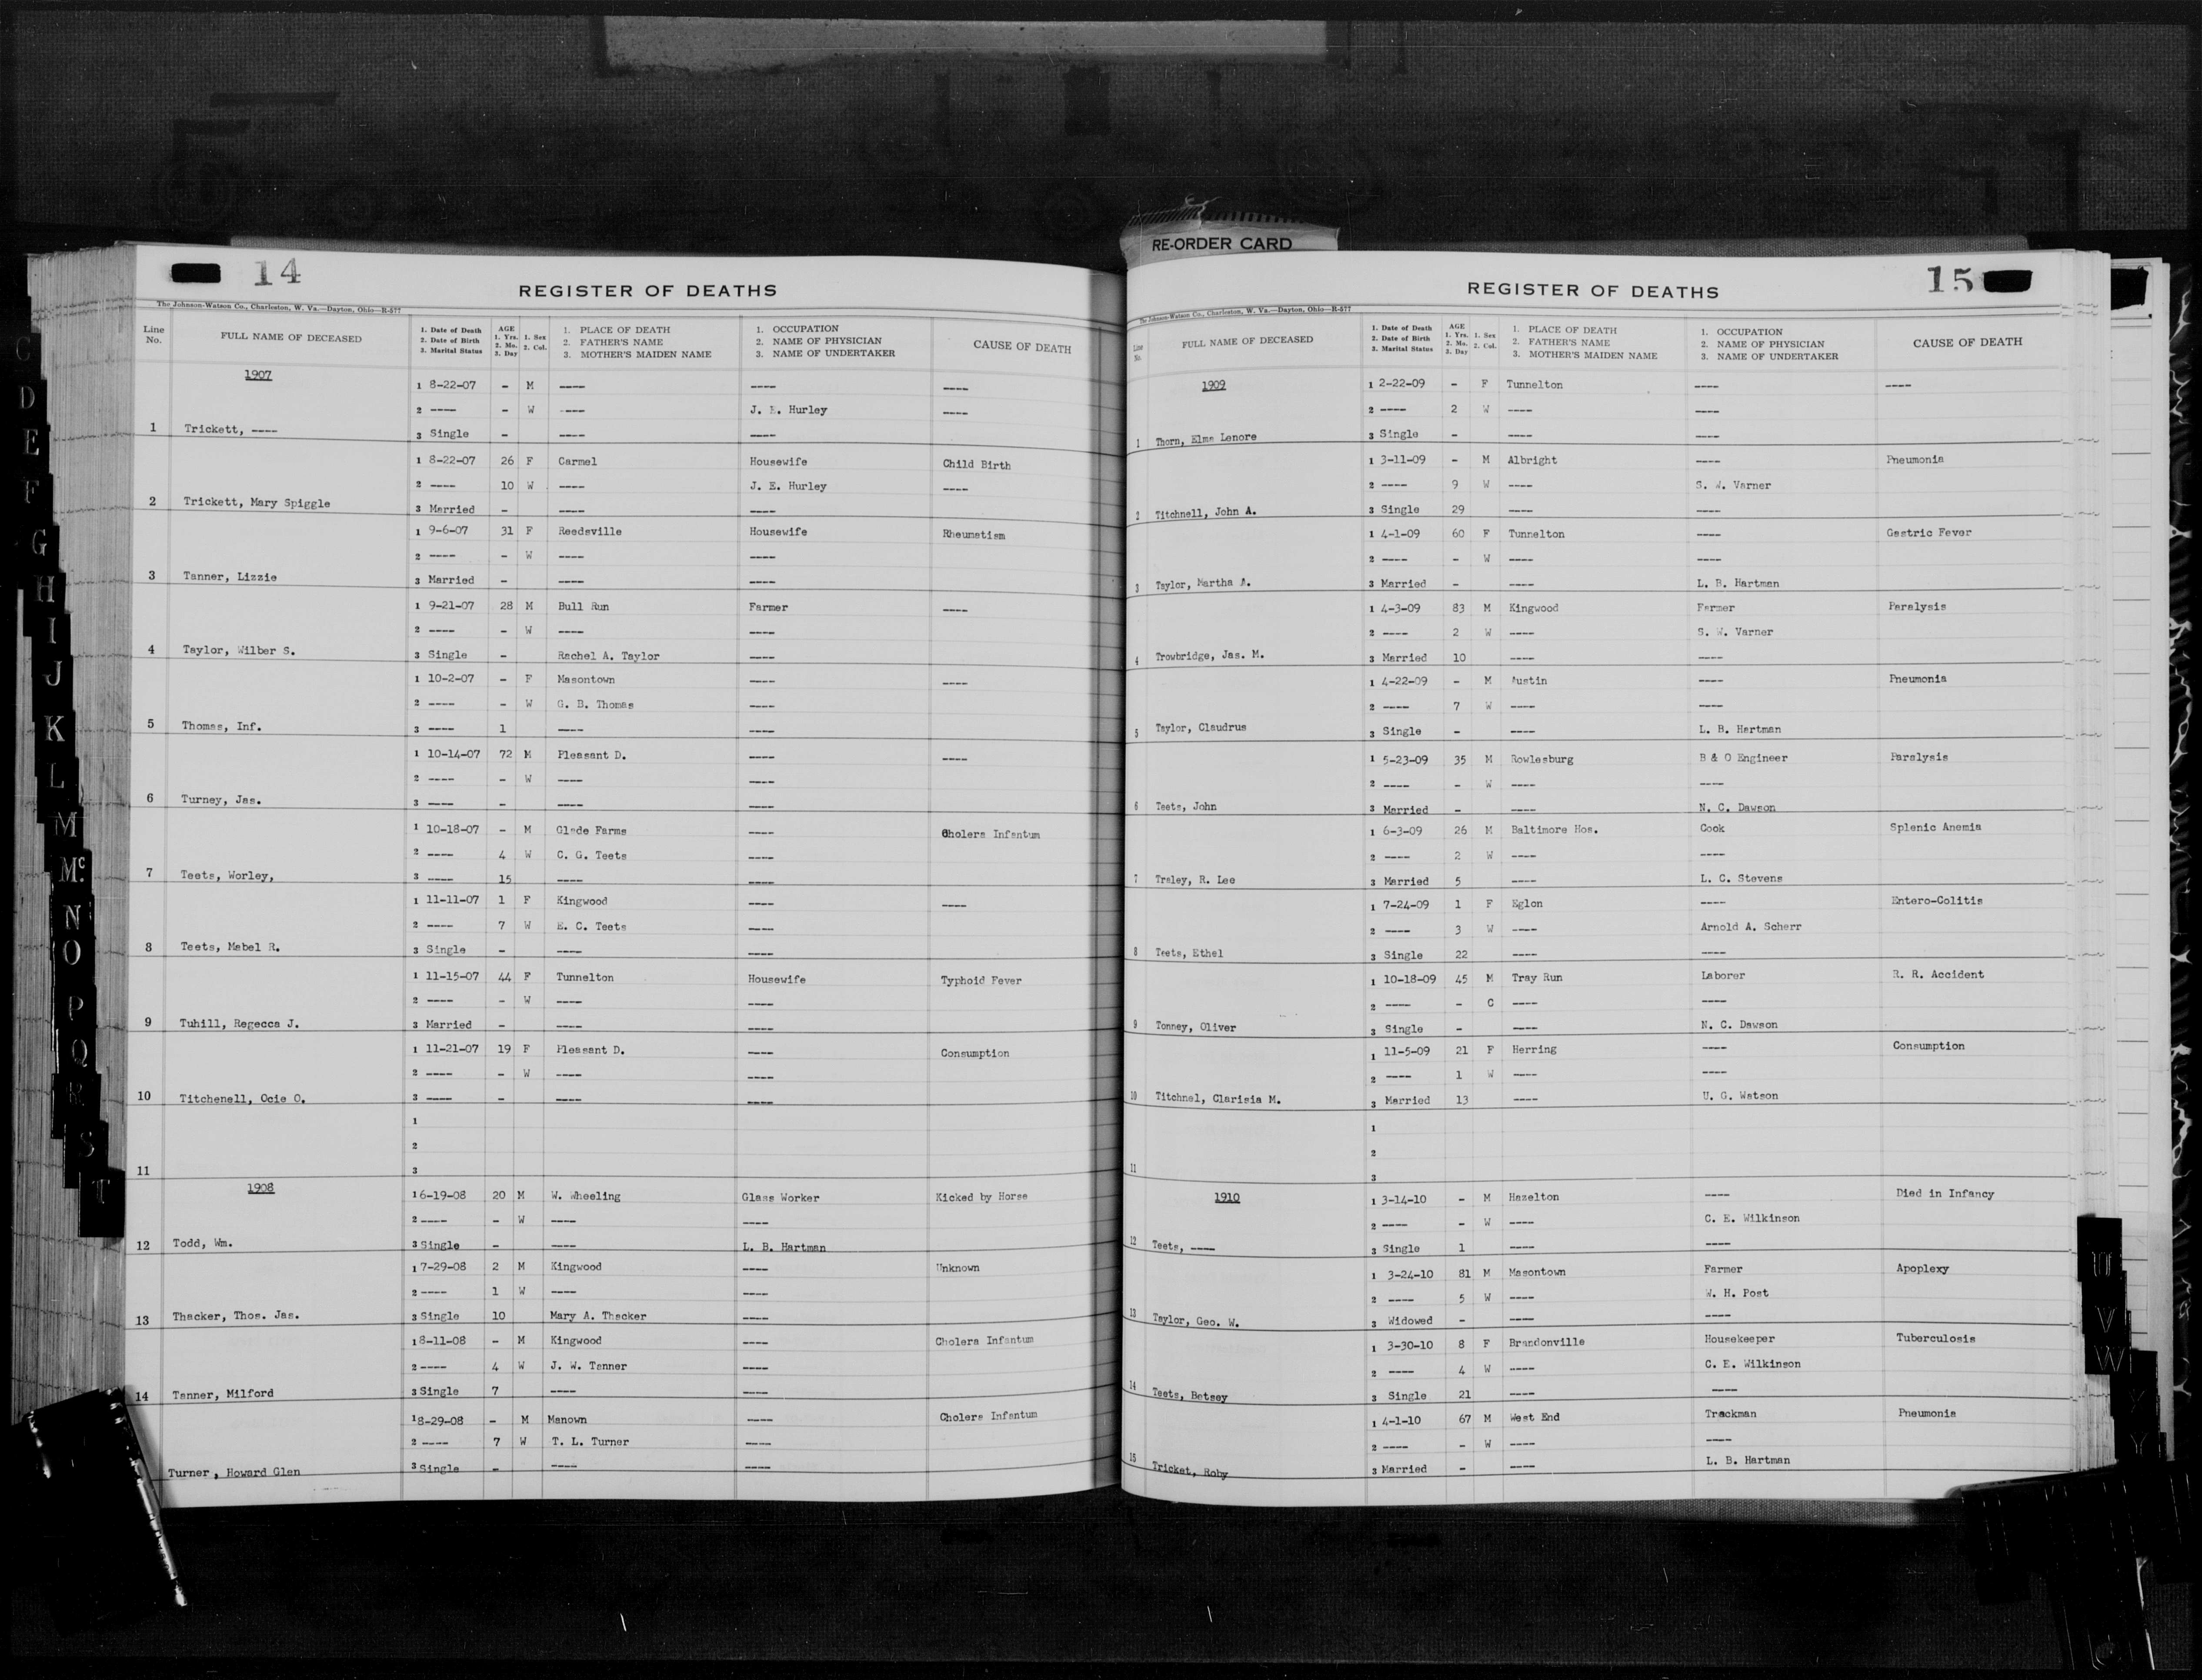 RE-ORDER CARD
14
REGISTER OF DEATHS
The Johnson-Watson Co., Charleston, W. Va.—Dayton, Ohio—R-577
Line No. FULL NAME OF DECEASED 1. Date of Death 2. Date of Birth 3. Marital Status AGE 1. Yrs. 2. Mo. 3. Day 1. Sex 2. Col. 1. PLACE OF DEATH 2. FATHER'S NAME 3. MOTHER'S MAIDEN NAME 1. OCCUPATION 2. NAME OF PHYSICIAN 3. NAME OF UNDERTAKER CAUSE OF DEATH
1907
1 8-22-07 - M ---- ---- ----
2 ---- - W ---- J. E. Hurley ----
1 Trickett, ---- 3 Single - ---- ----
1 8-22-07 26 F Carmel Housewife Child Birth
2 ---- 10 W ---- J. E. Hurley ----
2 Trickett, Mary Spiggle 3 Married - ---- ----
1 9-6-07 31 F Reedsville Housewife Rheumatism
2 ---- - W ---- ----
3 Tanner, Lizzie 3 Married - ---- ----
1 9-21-07 28 M Bull Run Farmer ----
2 ---- - W ---- ----
4 Taylor, Wilber S. 3 Single - Rachel A. Taylor ----
1 10-2-07 - F Masontown ---- ----
2 ---- - W G. B. Thomas ----
5 Thomas, Inf. 3 ---- 1 ---- ----
1 10-14-07 72 M Pleasant D. ---- ----
2 ---- - W ---- ----
6 Turney, Jas. 3 ---- - ---- ----
1 10-18-07 - M Glade Farms ---- Cholera Infantum
2 ---- 4 W C. G. Teets ----
7 Teets, Worley, 3 ---- 15 ---- ----
1 11-11-07 1 F Kingwood ---- ----
2 ---- 7 W E. C. Teets ----
8 Teets, Mabel R. 3 Single - ---- ----
1 11-15-07 44 F Tunnelton Housewife Typhoid Fever
2 ---- - W ---- ----
9 Tuhill, Regecca J. 3 Married - ---- ----
1 11-21-07 19 F Pleasant D. ---- Consumption
2 ---- - W ---- ----
10 Titchenell, Ocie O. 3 ---- - ---- ----
1
2
11 3
1908
1 6-19-08 20 M W. Wheeling Glass Worker Kicked by Horse
2 ---- - W ---- ----
12 Todd, Wm. 3 Single - ---- L. B. Hartman
1 7-29-08 2 M Kingwood ---- Unknown
2 ---- 1 W ---- ----
13 Thacker, Thos. Jas. 3 Single 10 Mary A. Thacker ----
1 8-11-08 - M Kingwood ---- Cholera Infantum
2 ---- 4 W J. W. Tanner ----
14 Tanner, Milford 3 Single 7 ---- ----
1 8-29-08 - M Manown ---- Cholera Infantum
2 ---- 7 W T. L. Turner ----
Turner, Howard Glen 3 Single - ---- ----
15
REGISTER OF DEATHS
The Johnson-Watson Co., Charleston, W. Va.—Dayton, Ohio—R-577
Line No. FULL NAME OF DECEASED 1. Date of Death 2. Date of Birth 3. Marital Status AGE 1. Yrs. 2. Mo. 3. Day 1. Sex 2. Col. 1. PLACE OF DEATH 2. FATHER'S NAME 3. MOTHER'S MAIDEN NAME 1. OCCUPATION 2. NAME OF PHYSICIAN 3. NAME OF UNDERTAKER CAUSE OF DEATH
1909
1 2-22-09 - F Tunnelton ---- ----
2 ---- 2 W ---- ----
1 Thorn, Elma Lenore 3 Single - ---- ----
1 3-11-09 - M Albright ---- Pneumonia
2 ---- 9 W ---- S. W. Varner
2 Titchnell, John A. 3 Single 29 ---- ----
1 4-1-09 60 F Tunnelton ---- Gastric Fever
2 ---- - W ---- ----
3 Taylor, Martha A. 3 Married - ---- L. B. Hartman
1 4-3-09 83 M Kingwood Farmer Paralysis
2 ---- 2 W ---- S. W. Varner
4 Trowbridge, Jas. M. 3 Married 10 ---- ----
1 4-22-09 - M Austin ---- Pneumonia
2 ---- 7 W ---- ----
5 Taylor, Claudrus 3 Single - ---- L. B. Hartman
1 5-23-09 35 M Rowlesburg B & O Engineer Paralysis
2 ---- - W ---- ----
6 Teets, John 3 Married - ---- N. C. Dawson
1 6-3-09 26 M Baltimore Hos. Cook Splenic Anemia
2 ---- 2 W ---- ----
7 Traley, R. Lee 3 Married 5 ---- L. C. Stevens
1 7-24-09 1 F Eglon ---- Entero-Colitis
2 ---- 3 W ---- Arnold A. Scherr
8 Teets, Ethel 3 Single 22 ---- ----
1 10-18-09 45 M Tray Run Laborer R. R. Accident
2 ---- - C ---- ----
9 Tonney, Oliver 3 Single - ---- N. C. Dawson
1 11-5-09 21 F Herring ---- Consumption
2 ---- 1 W ---- ----
10 Titchnel, Clarisia M. 3 Married 13 ---- U. G. Watson
1
2
11 3
1910
1 3-14-10 - M Hazelton ---- Died in Infancy
2 ---- - W ---- C. E. Wilkinson
12 Teets, ---- 3 Single 1 ---- ----
1 3-24-10 81 M Masontown Farmer Apoplexy
2 ---- 5 W ---- W. H. Post
13 Taylor, Geo. W. 3 Widowed - ---- ----
1 3-30-10 8 F Brandonville Housekeeper Tuberculosis
2 ---- 4 W ---- C. E. Wilkinson
14 Teets, Betsey 3 Single 21 ---- ----
1 4-1-10 67 M West End Trackman Pneumonia
2 ---- - W ---- ----
15 Tricket, Roby 3 Married - ---- L. B. Hartman
C
D
E
F
G
H
I
J
K
L
M
Mc
N
O
P
Q
R
S
T
U
V
W
Y